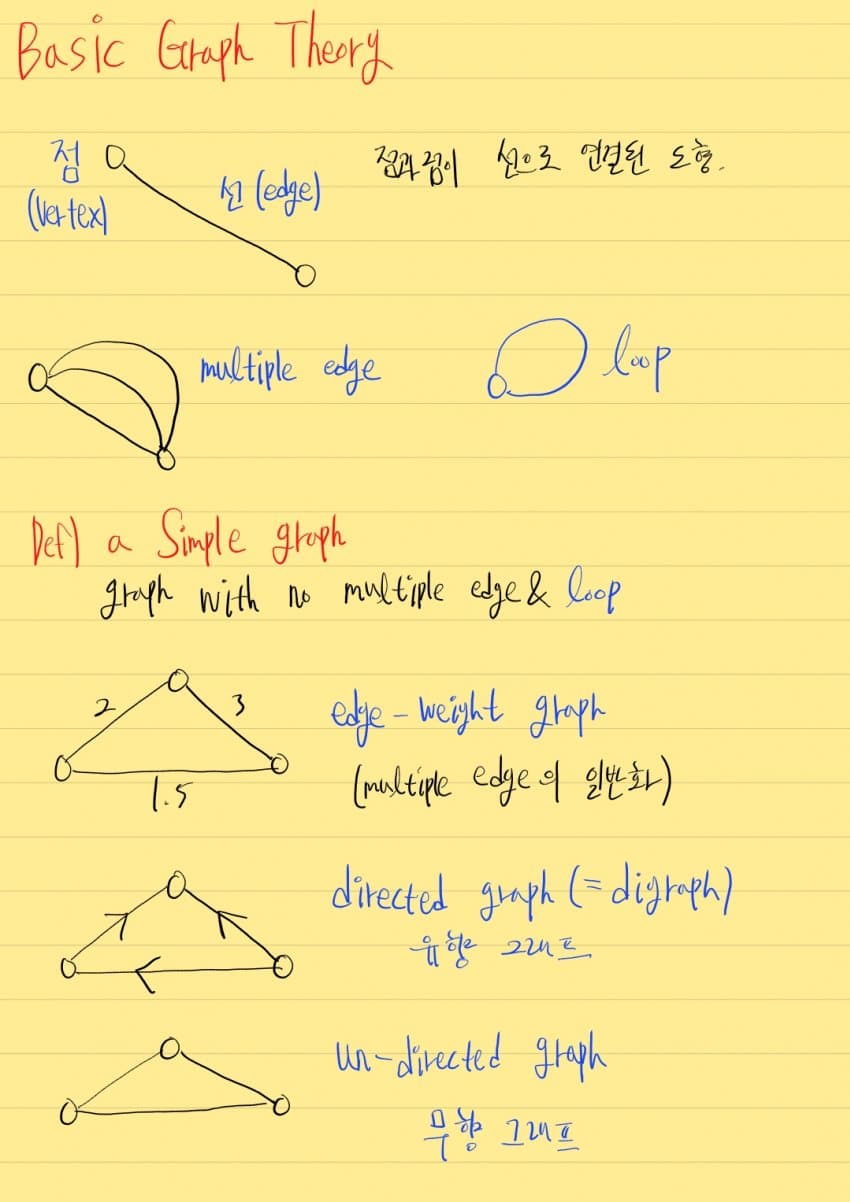 Basic Graph Theory
점
(vertex)
선 (edge)
점과 점이 선으로 연결된 도형.
multiple edge
loop
Def) a Simple graph
graph with no multiple edge & loop
2
3
1.5
edge-weight graph
(multiple edge의 일반화)
directed graph (= digraph)
유향 그래프
un-directed graph
무향 그래프